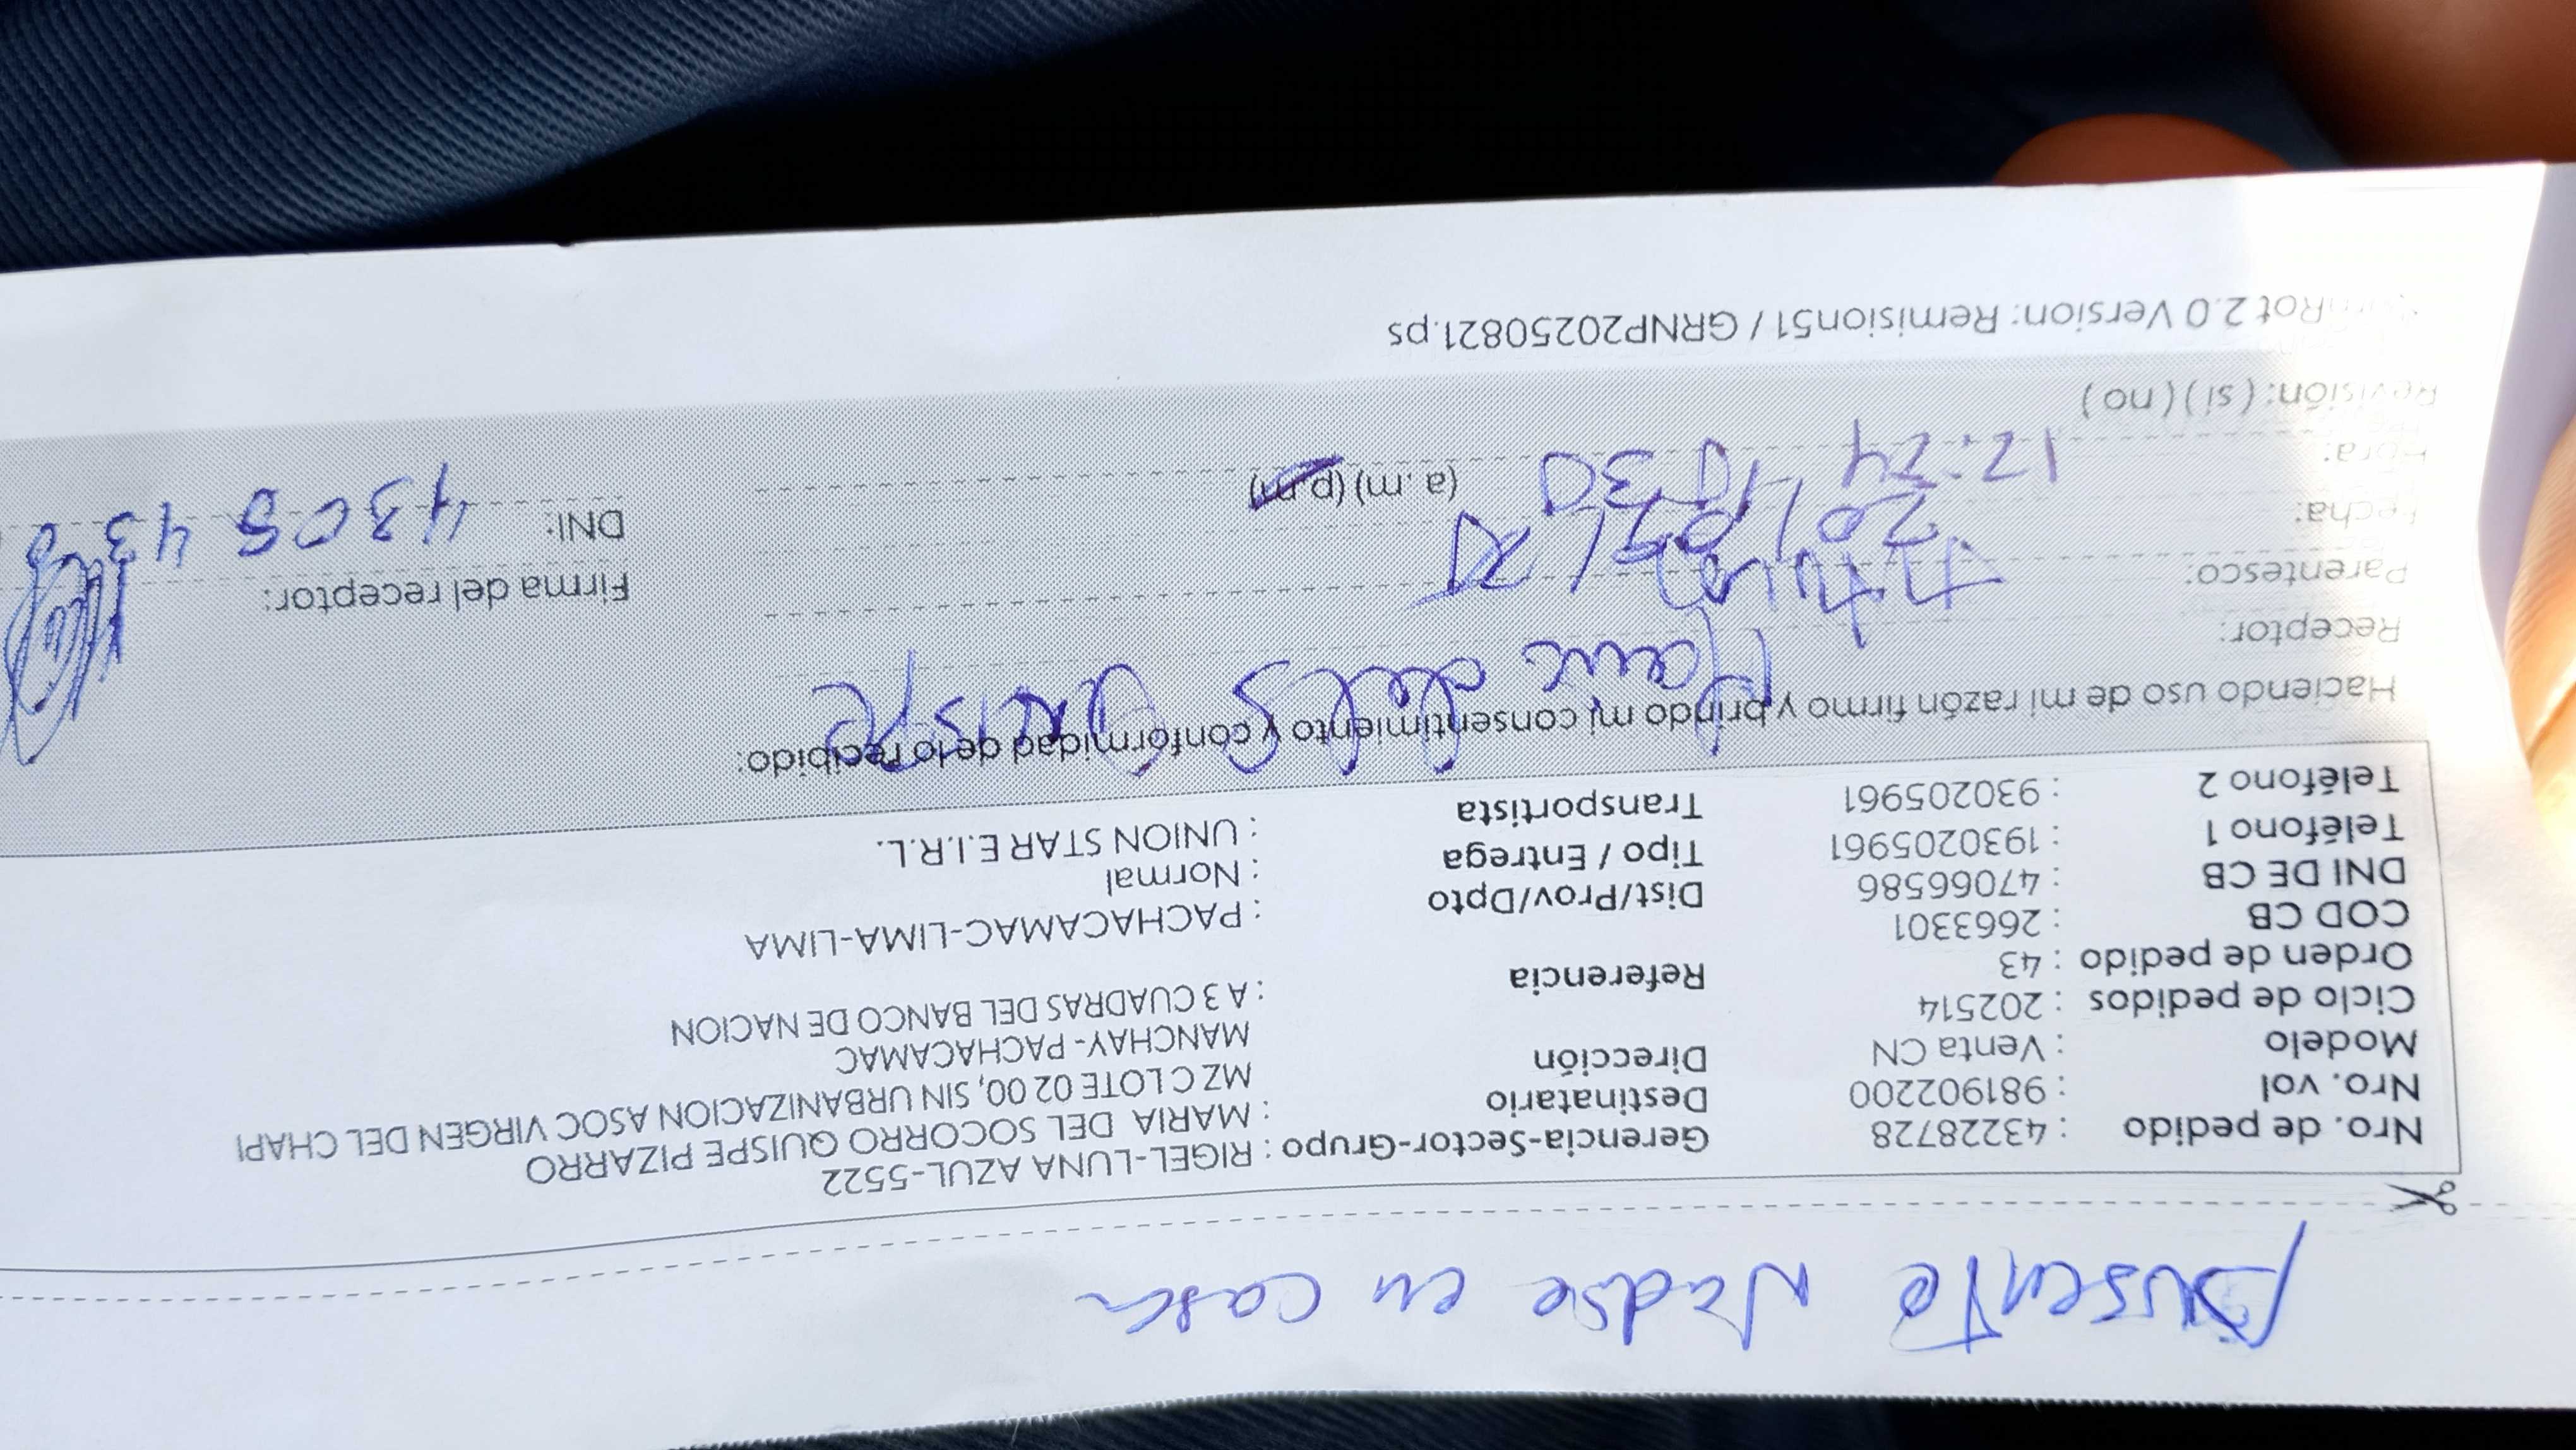 Ausente Nadie en casa
Nro. de pedido : 43228728 Gerencia-Sector-Grupo : RIGEL-LUNA AZUL-5522
Nro. vol : 981902200 Destinatario : MARIA DEL SOCORRO QUISPE PIZARRO
Modelo : Venta CN Dirección MZ C LOTE 02 00, SIN URBANIZACION ASOC VIRGEN DEL CHAPI
MANCHAY- PACHACAMAC
Ciclo de pedidos : 202514
Orden de pedido : 43 Referencia : A 3 CUADRAS DEL BANCO DE NACION
COD CB : 2663301
DNI DE CB : 47066586 Dist/Prov/Dpto : PACHACAMAC-LIMA-LIMA
Teléfono 1 : 1930205961 Tipo / Entrega : Normal
Teléfono 2 : 930205961 Transportista : UNION STAR E.I.R.L.
Haciendo uso de mi razón firmo y brindo mi consentimiento y conformidad de lo recibido:
Receptor: Quispe
Parentesco: Firma del receptor:
Fecha: 20 DNI: 4305 43
Hora: 12:24 10:30 (a.m) (p.m)
Revisión: ( si ) ( no )
Rot 2.0 Version: Remision51 / GRNP20250821.ps